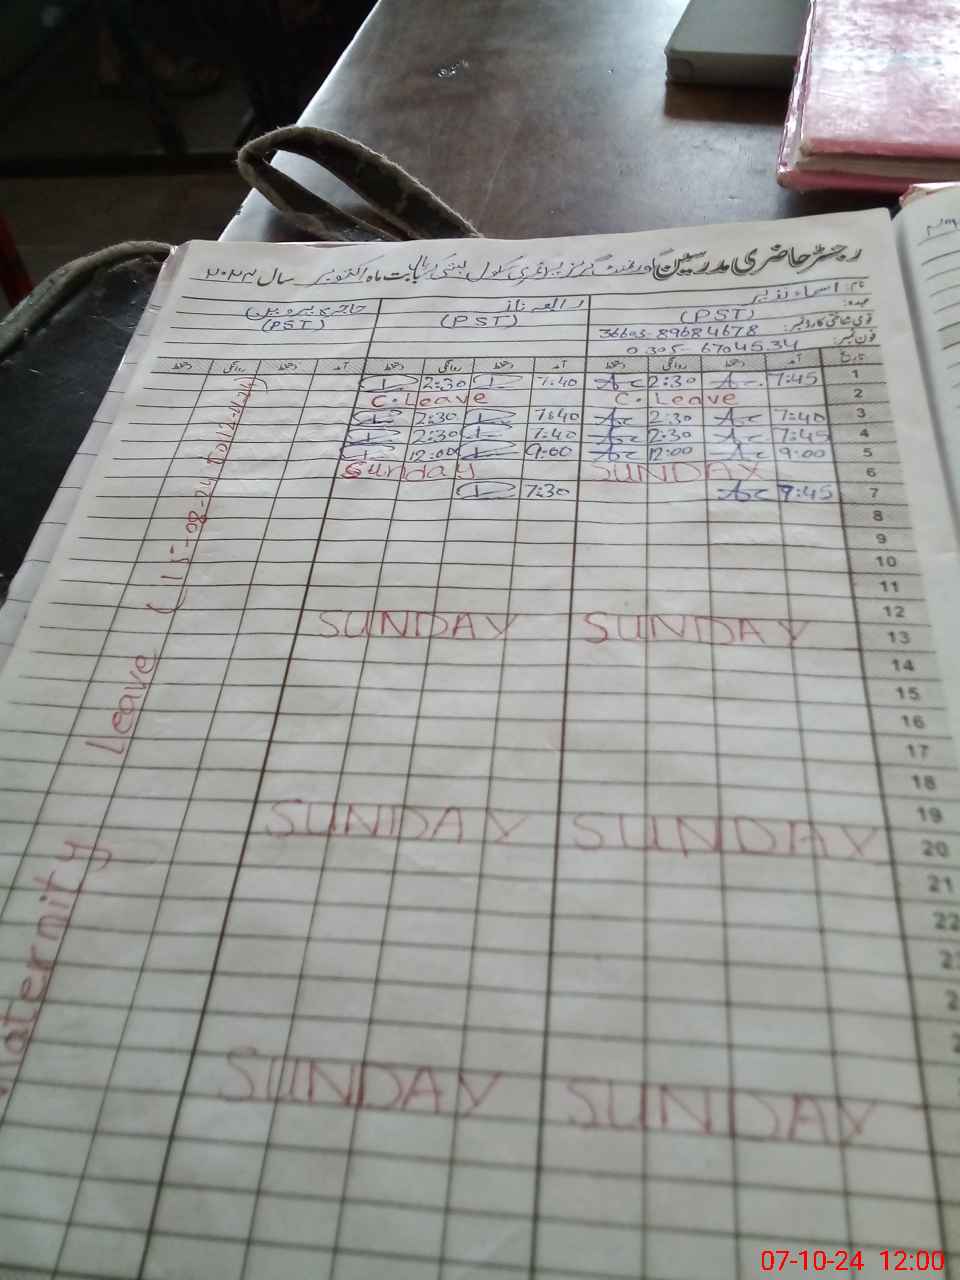 رجسٹر حاضری مدرسین گورنمنٹ گرلز پرائمری سکول بستی بابت ماہ اکتوبر سال ۲۰۲۴
نام: اسماء نذیر رابعہ ناز حاجرہ پروین
عہدہ: (PST) (PST) (PST)
قومی شناختی کارڈ نمبر: 36603-89684678
فون نمبر: 0305-6704534
تاریخ آمد دستخط روانگی دستخط آمد دستخط روانگی دستخط آمد دستخط روانگی دستخط
2:30 7:40 2:30 7:45 1
C.Leave C.Leave 2
2:30 7:40 2:30 7:40 3
2:30 7:40 2:30 7:45 4
12:00 9:00 12:00 9:00 5
Sunday SUNDAY 6
7:30 7:45 7
8
9
10
11
12
SUNDAY SUNDAY 13
14
15
16
17
18
19
SUNDAY SUNDAY 20
21
22
SUNDAY SUNDAY
Maternity Leave (15-08-24 to 12-11-24)
07-10-24 12:00